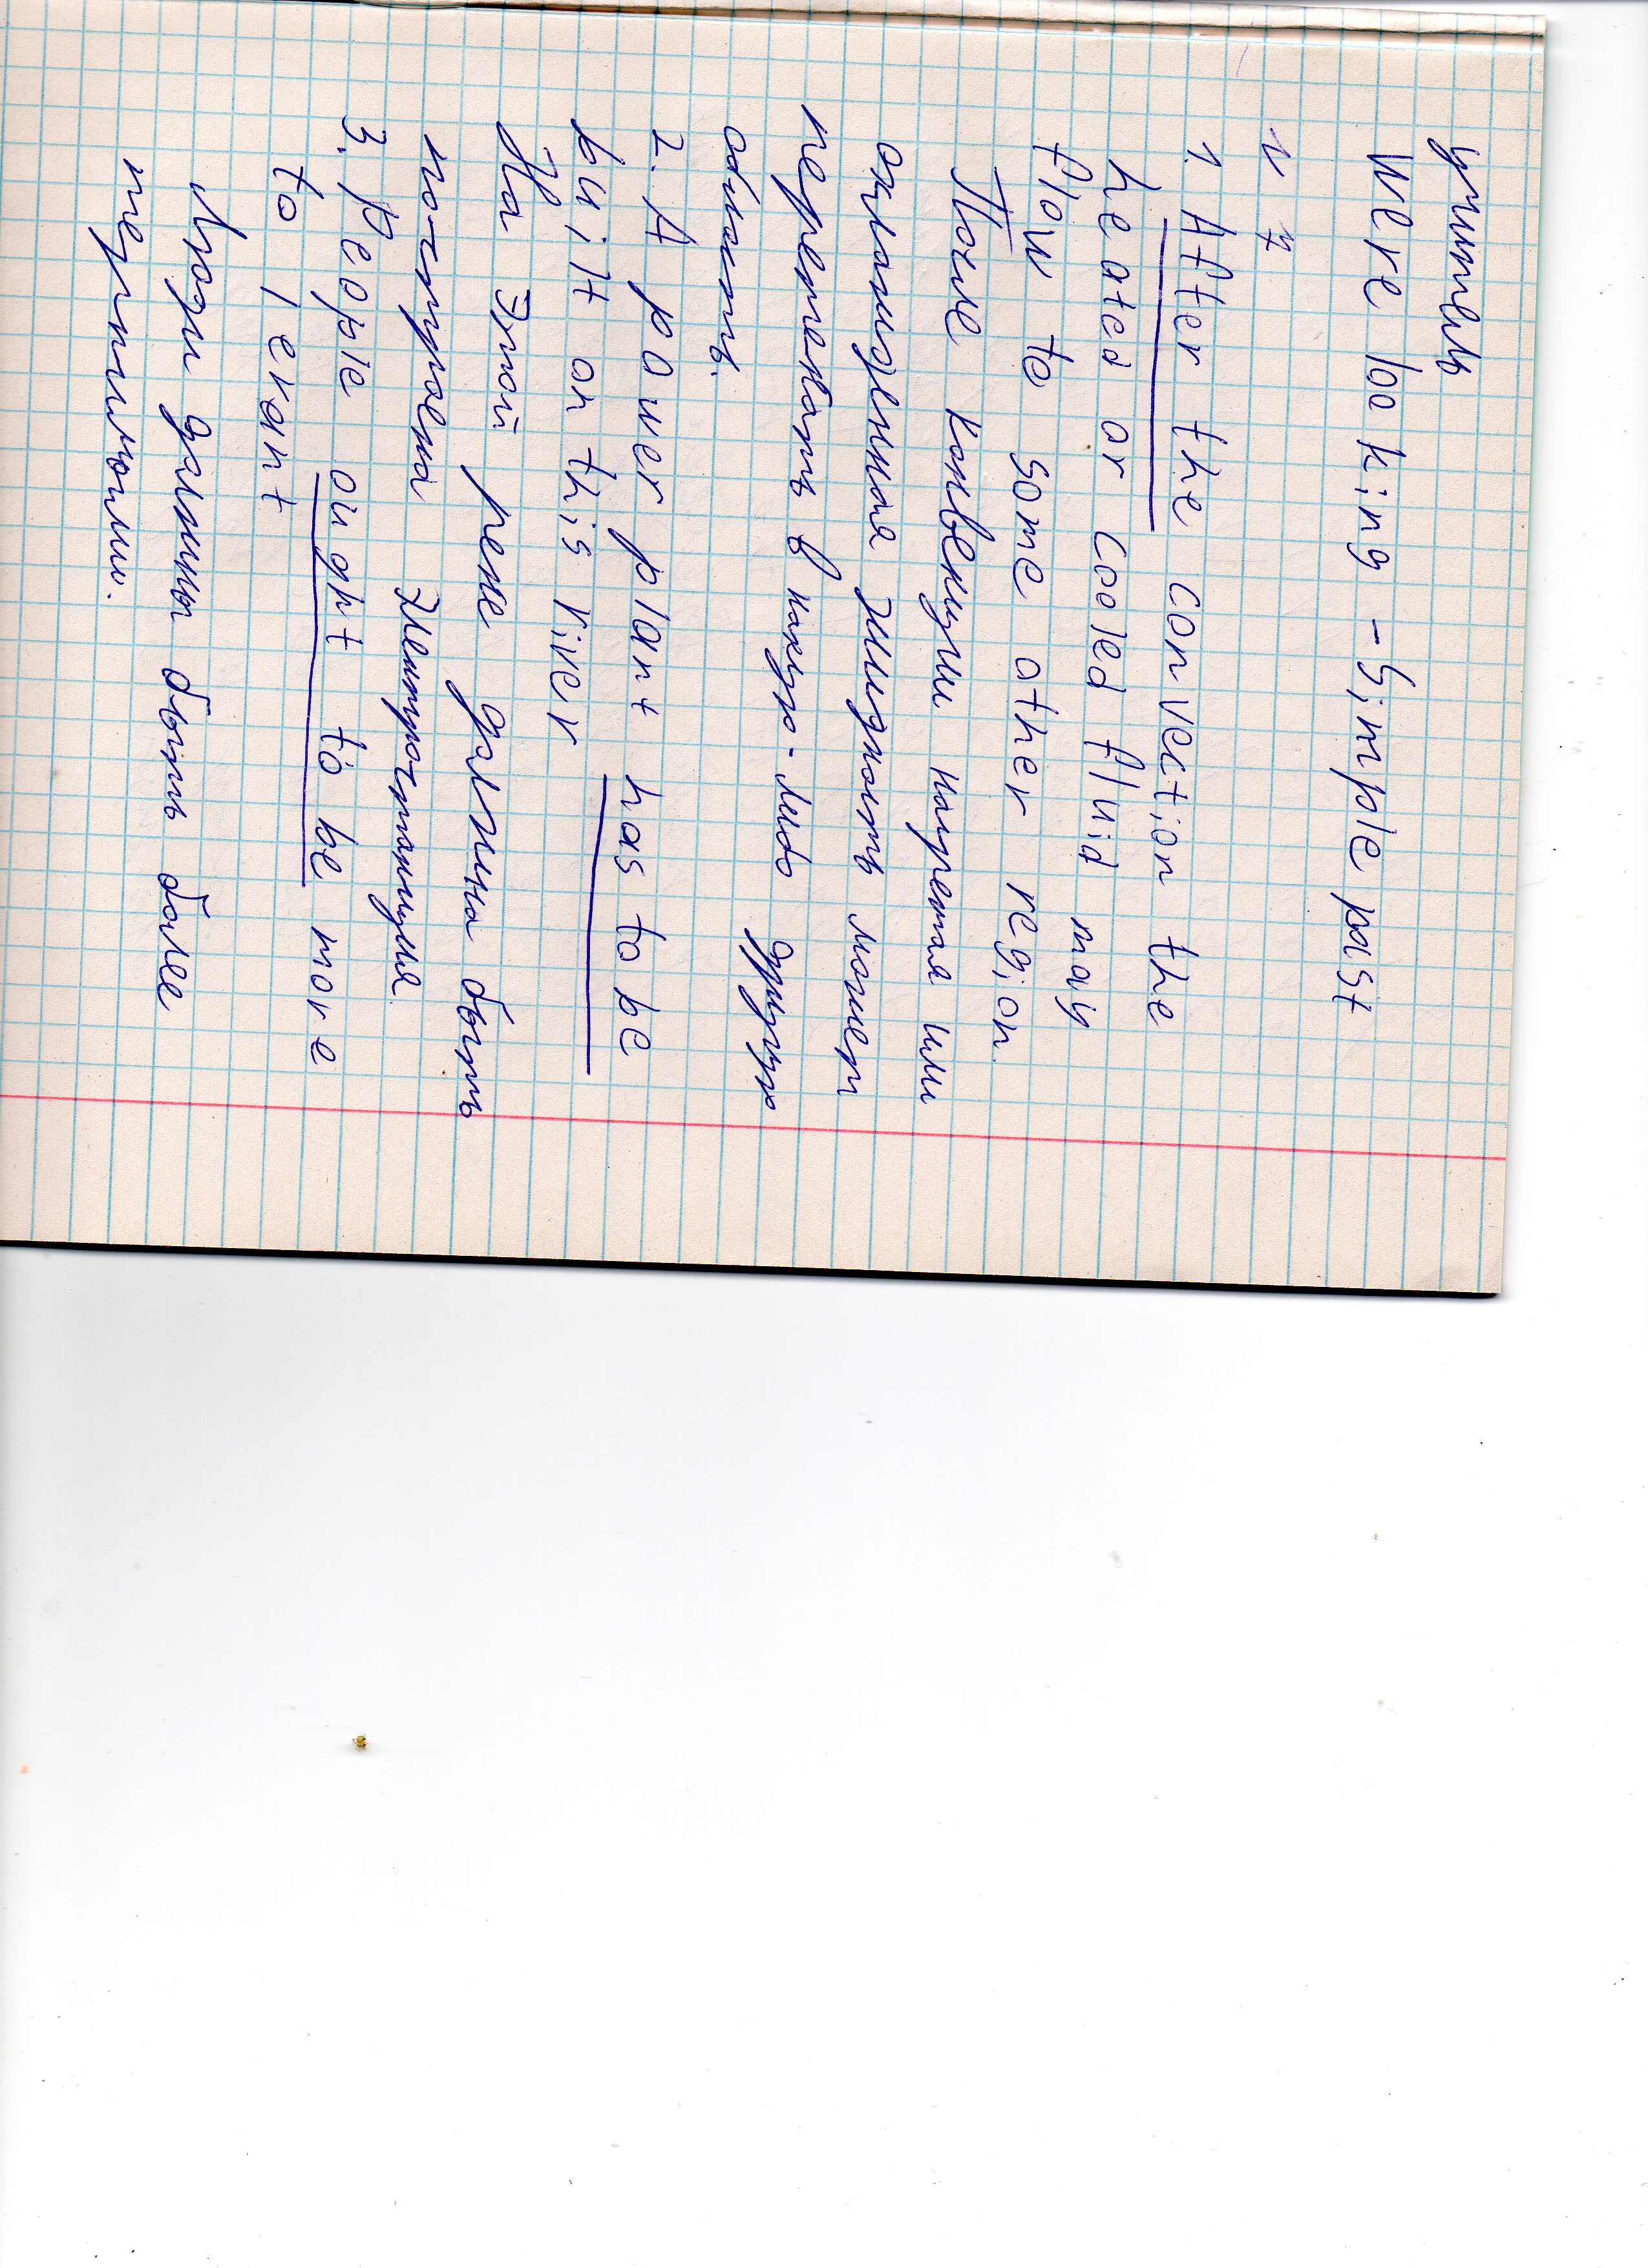 учитель
Were looking - Simple past
N 7
1. After the convection the
heated or cooled fluid may
flow to some other region.
После конвекции нагретая или
охлажденная жидкость может
перетекать в какую-либо другую
область.
2. A power plant has to be
built on this river
На этой реке должна быть
построена электростанция.
3. People ought to be more
to lerant
Люди должны быть более
терпимыми.